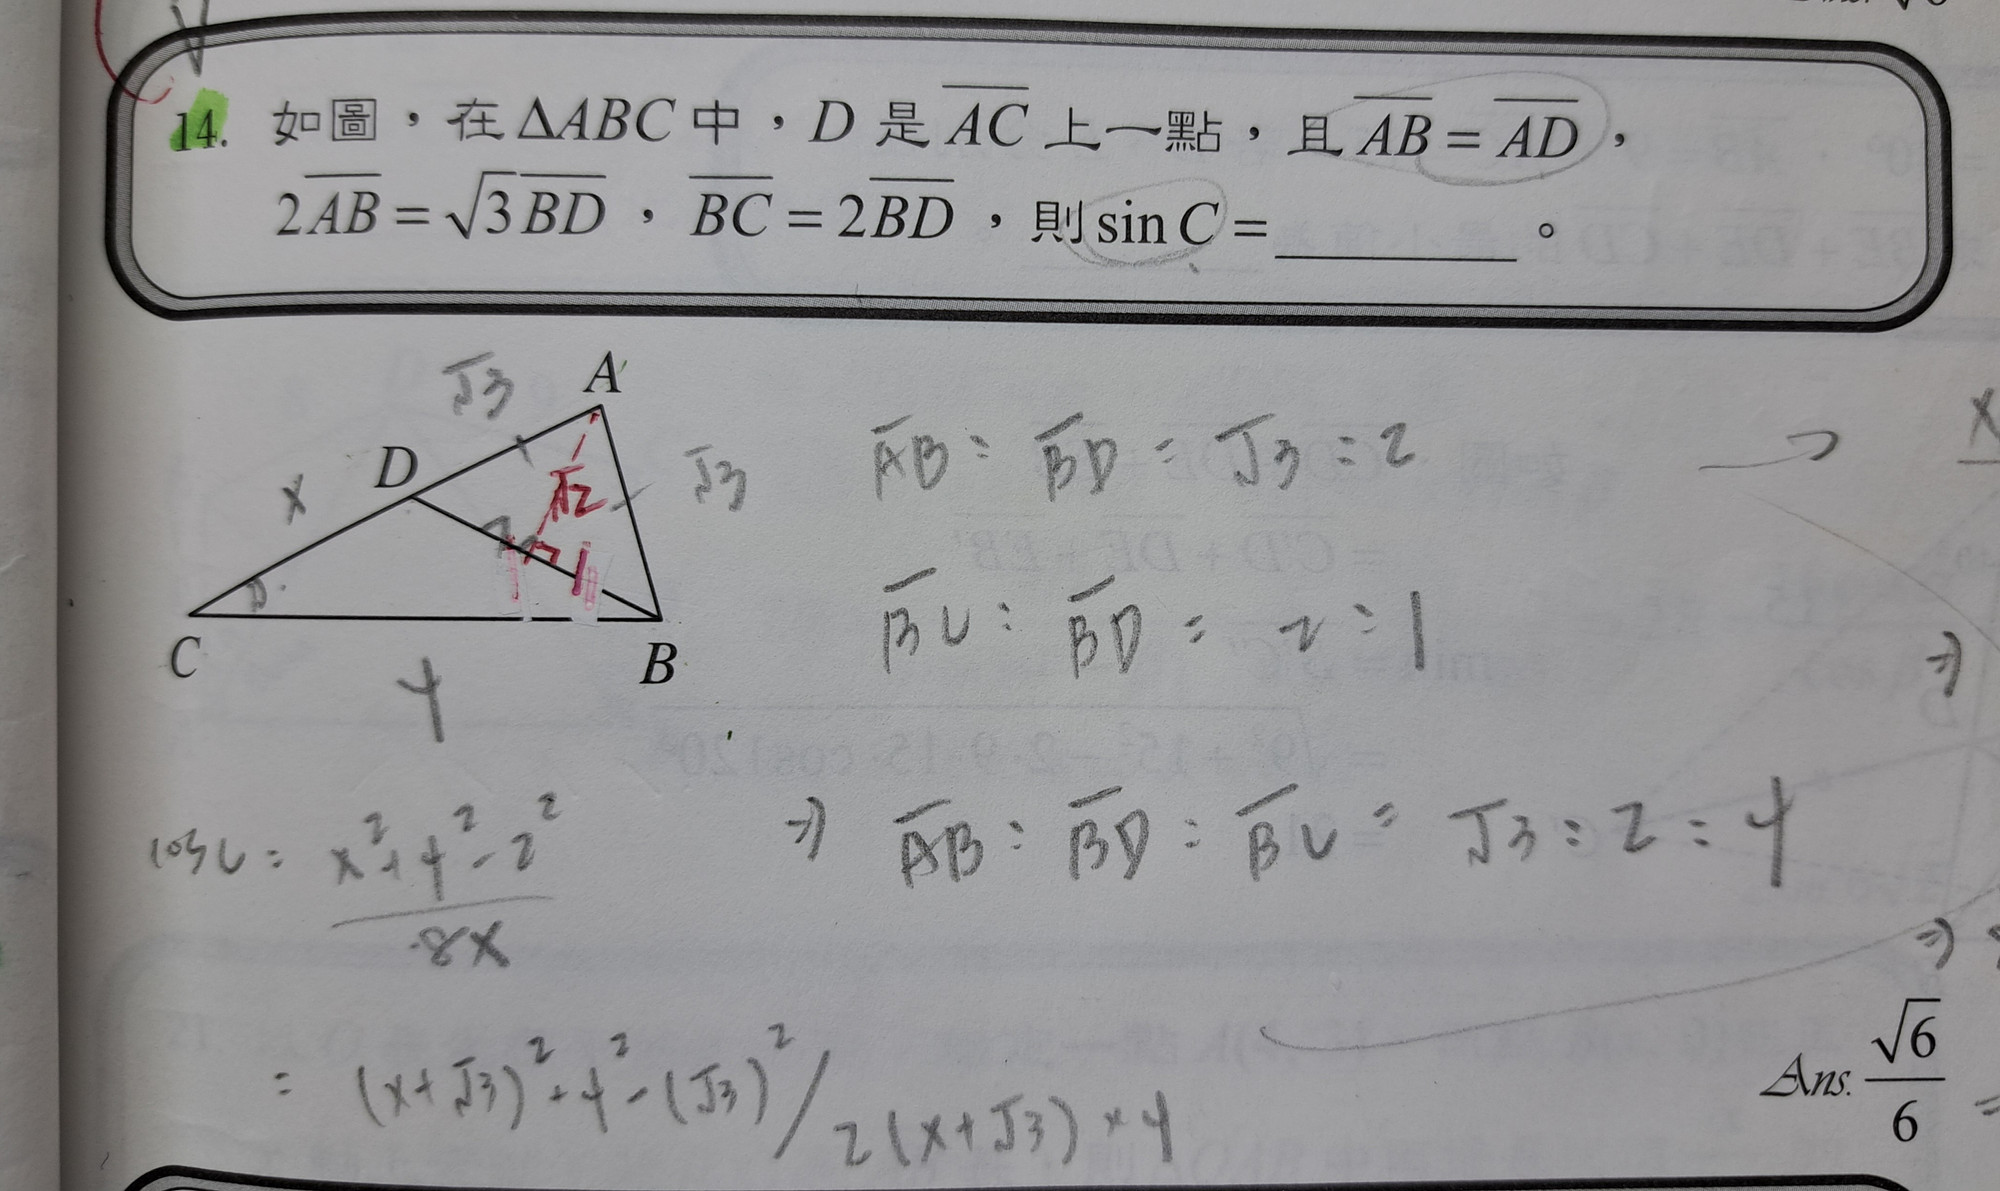 14. 如圖，在 ΔABC 中，D 是 \overline{AC} 上一點，且 \overline{AB} = \overline{AD}，
2\overline{AB} = √3\overline{BD}，\overline{BC} = 2\overline{BD}，則 sin C = ________。
√3
A
D
x
√2
√3
2
1
1
C
B
4
\overline{AB} : \overline{BD} = √3 : 2
\overline{BC} : \overline{BD} = 2 : 1
⇒ \overline{AB} : \overline{BD} : \overline{BC} = √3 : 2 : 4
cos C = \frac{x² + 4² - 2²}{8x}
= (x+√3)² + 4² - (√3)² / 2(x+√3) × 4
Ans. \frac{√6}{6}